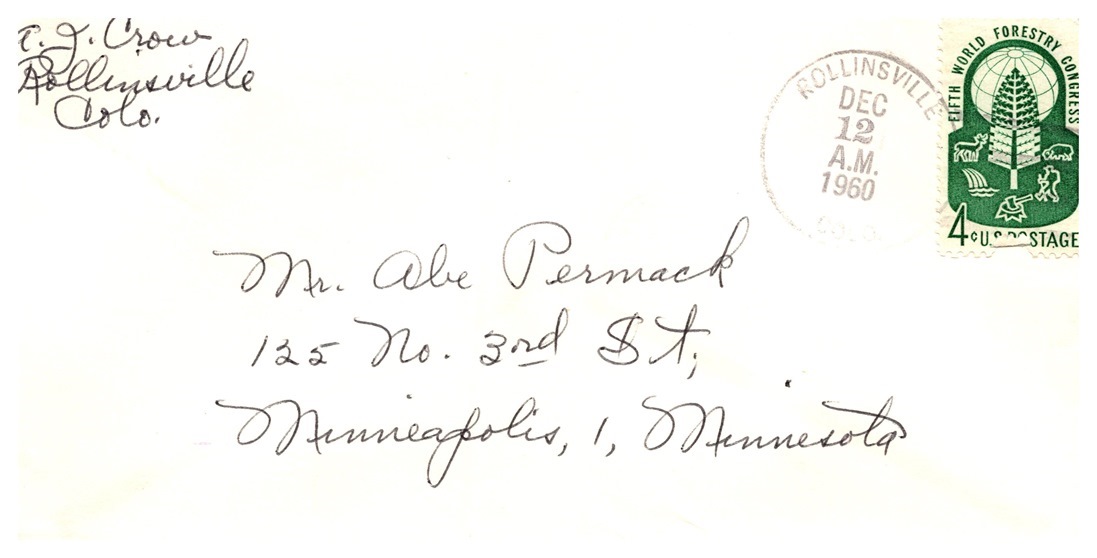 Crow
Rollinsville
Colo.
ROLLINSVILLE
DEC
12
A.M.
1960
COLO.
FIFTH WORLD FORESTRY CONGRESS
4¢ U.S. POSTAGE
Mr. Abe Permack
125 No. 3rd St,
Minneapolis, 1, Minnesota